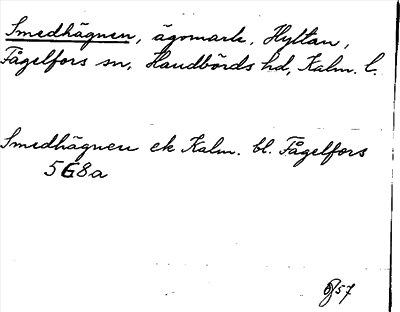 Smedhägnen, ägomark, Hyltan,
Fågelfors sn, Handbörds hd, Kalm. l.
Smedhägnen ek Kalm. bl. Fågelfors
5G8a
57